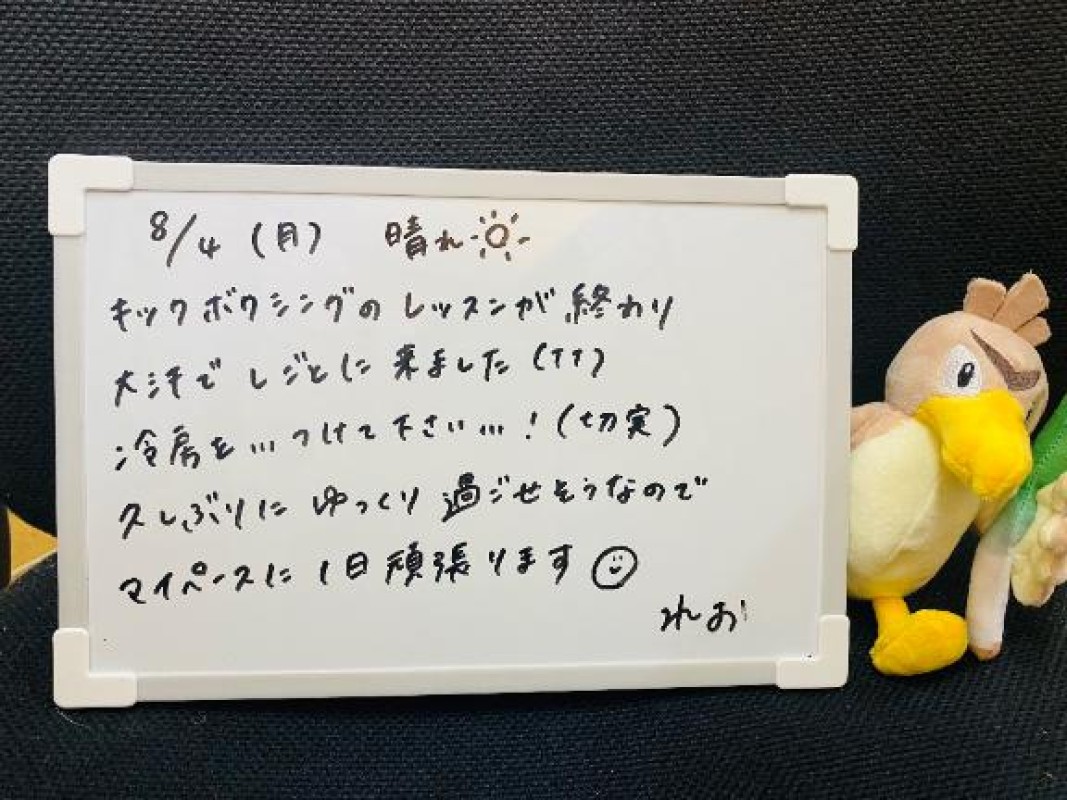 8/4 (月) 晴れ
キックボクシングのレッスンが終わり
大汗でしごとに来ました(TT)
冷房を…つけて下さい…!(切実)
久しぶりにゆっくり過ごせそうなので
マイペースに1日頑張ります
れお